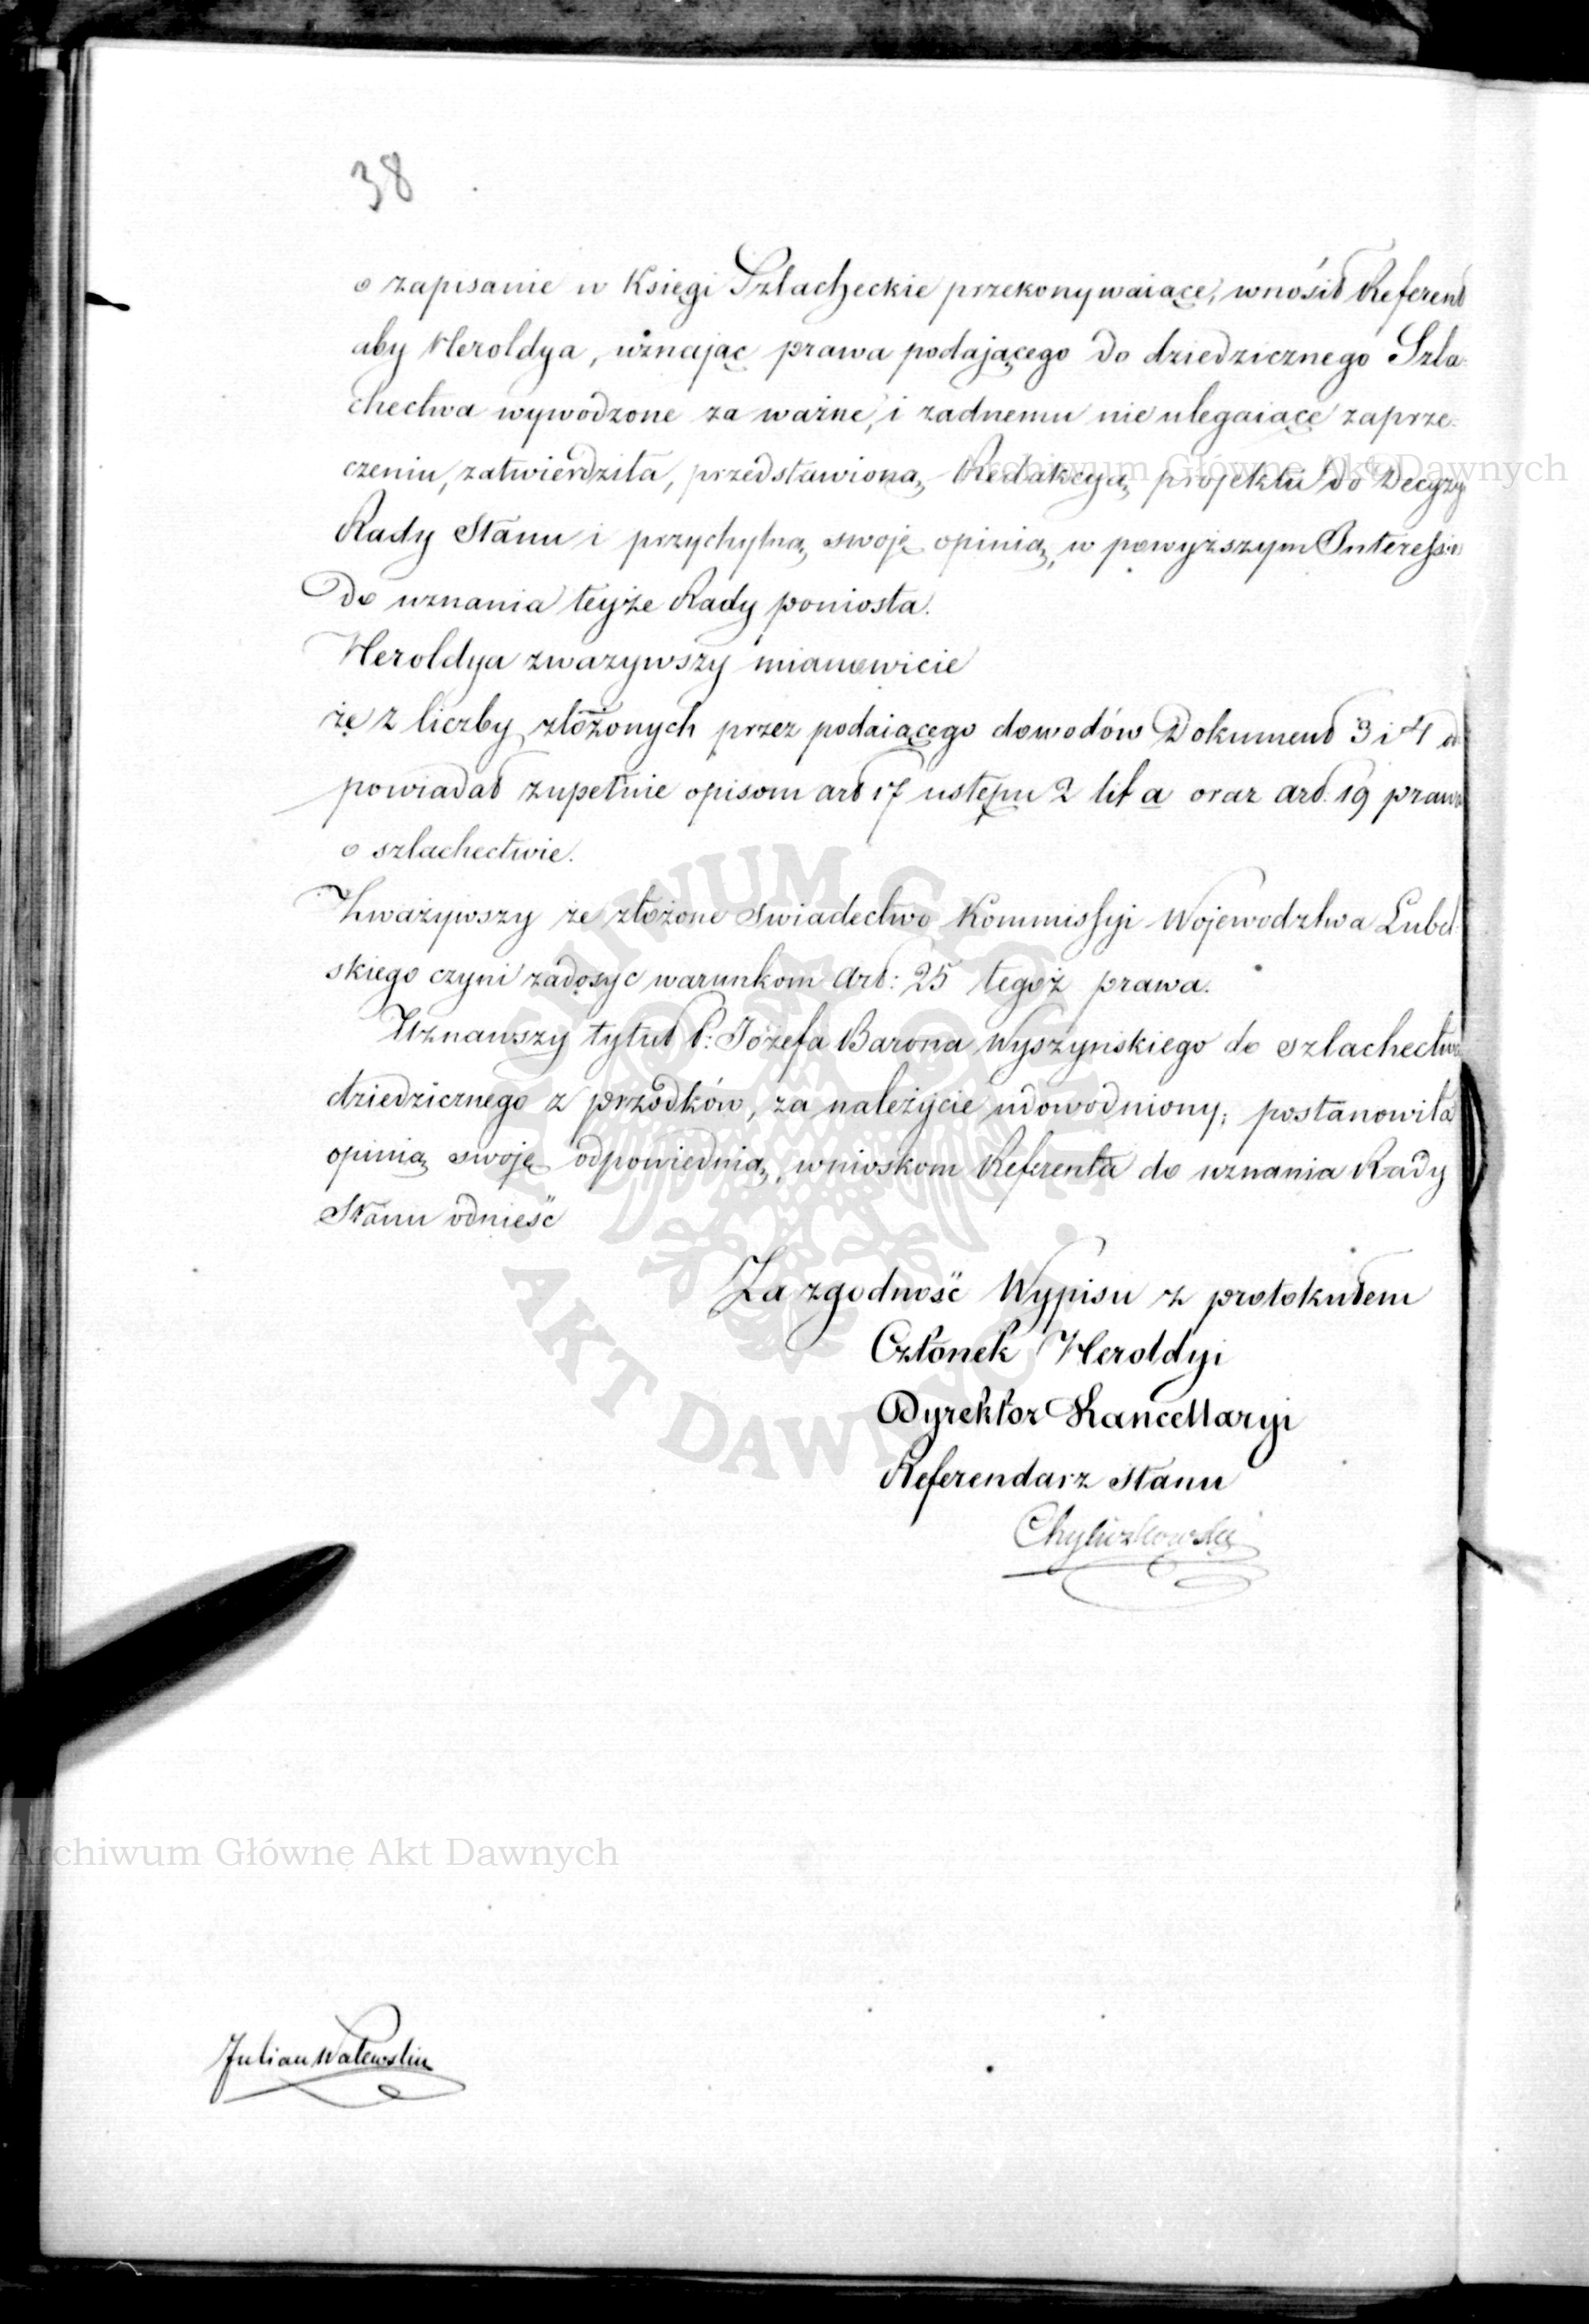 38
o zapisanie w Księgi Szlacheckie przekonywaiące, wnosił Referent
aby Heroldya, uznając prawa podającego do dziedzicznego Szla-
chectwa wywodzone za ważne, i żadnemu nie ulegaiące zaprze-
czeniu, zatwierdziła, przedstawioną Redakcyą projektu do Decyzyi
Rady Stanu i przychylną swoję opinią, w powyższym Interessie
do uznania teyże Rady poniosła.
Heroldya zważywszy mianowicie
że z liczby złożonych przez podaiącego dowodów Dokument 3 i 4 od-
powiadał zupełnie opisom art 17 ustępu 2 lit a oraz art. 19 prawa
o szlachectwie.
Zważywszy że złożone świadectwo Kommissyi Wojewodztwa Lubel-
skiego czyni zadosyc warunkom Art: 25 tegoż prawa.
Uznawszy tytuł P: Józefa Barona Wyszyńskiego do szlachectwa
dziedzicznego z przodków, za należycie udowodniony; postanowiła
opinią swoję odpowiednią, wnioskom Referenta do uznania Rady
Stanu odnieść
Za zgodność Wypisu z protokułem
Członek Heroldyi
Dyrektor Kancellaryi
Referendarz Stanu
Chyliczkowski
Julian Walewski
Archiwum Główne Akt Dawnych
Archiwum Główne Akt Dawnych
ARCHIWUM GŁÓWNE AKT DAWNYCH